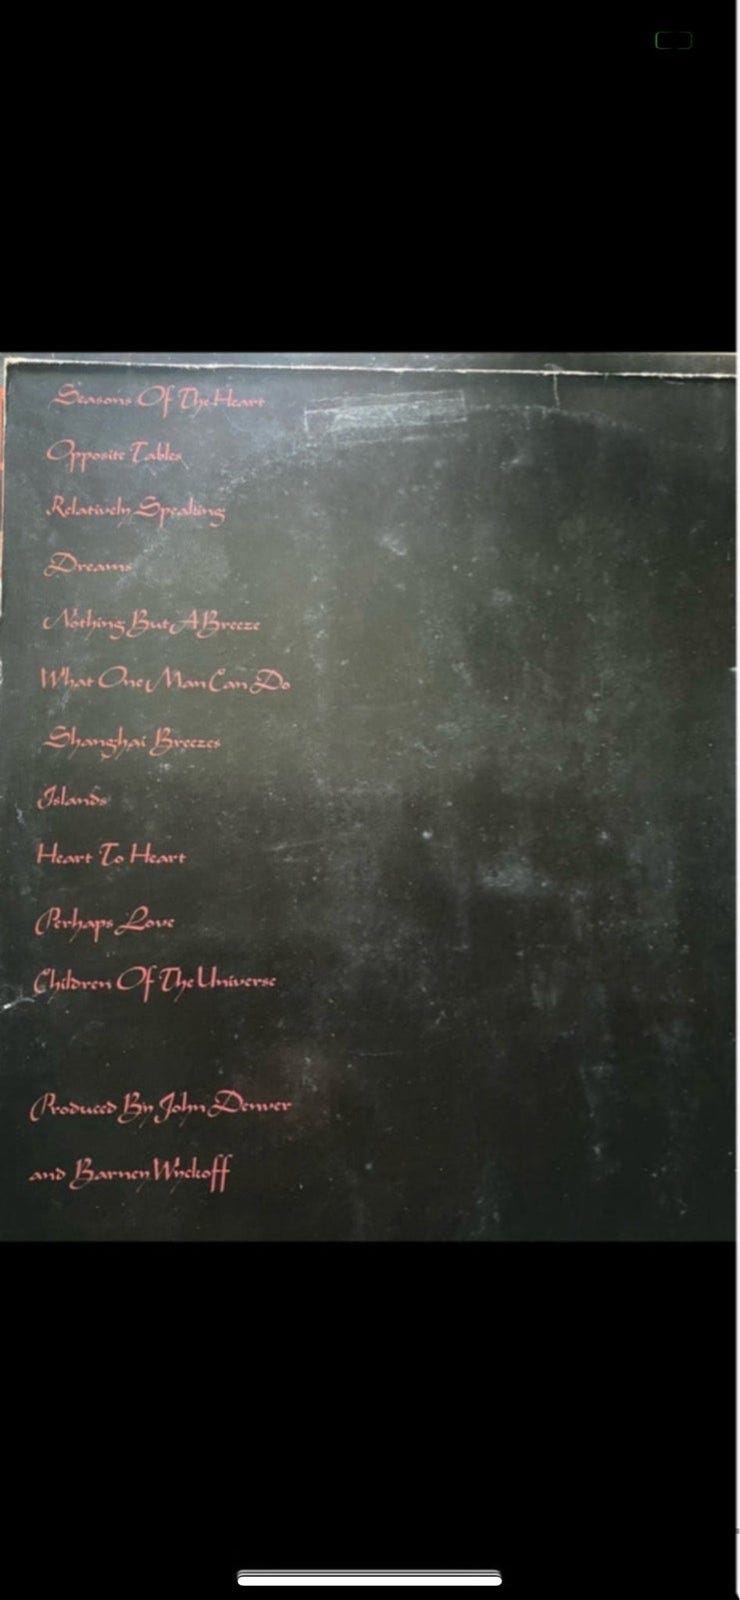 Seasons Of The Heart
Opposite Tables
Relatively Speaking
Dreams
Nothing But A Breeze
What One Man Can Do
Shanghai Breezes
Islands
Heart To Heart
Perhaps Love
Children Of The Universe
Produced By John Denver
and Barney Wyckoff